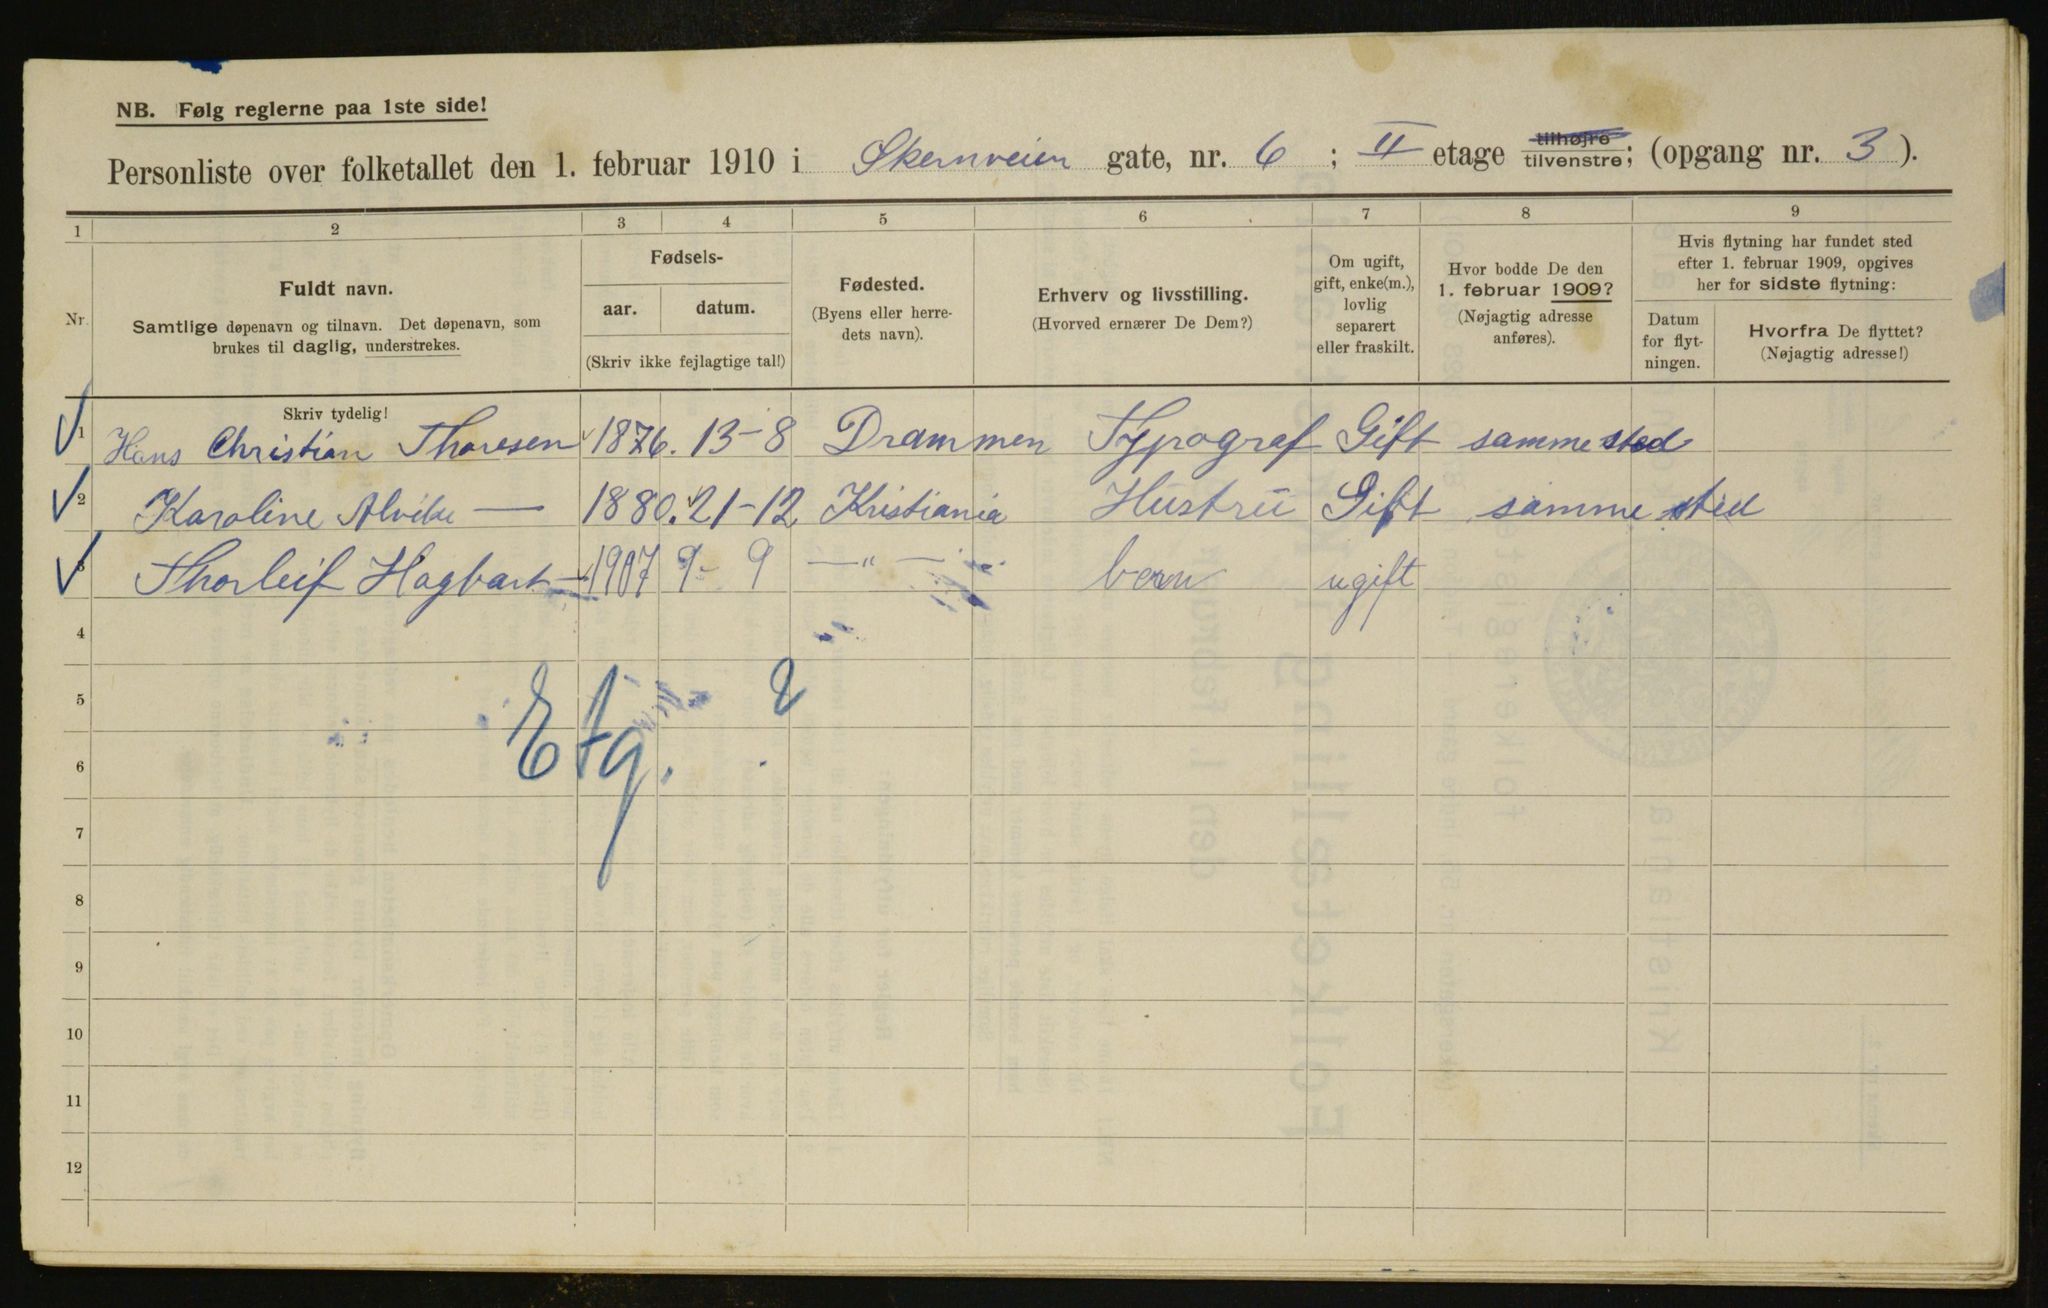 NB. Følg reglerne paa 1ste side!
Personliste over folketallet den 1. februar 1910 i Økernveien gate, nr. 6 ; II etage tilhøjre tilvenstre; (opgang nr. 3 ).
1 2 3 4 5 6 7 8 9
Nr.
Fuldt navn.
Samtlige døpenavn og tilnavn. Det døpenavn, som
brukes til daglig, understrekes.
Fødsels-
aar. datum.
(Skriv ikke fejlagtige tal!)
Fødested.
(Byens eller herre-
dets navn).
Erhverv og livsstilling.
(Hvorved ernærer De Dem?)
Om ugift,
gift, enke(m.),
lovlig
separert
eller fraskilt.
Hvor bodde De den
1. februar 1909?
(Nøjagtig adresse
anføres).
Hvis flytning har fundet sted
efter 1. februar 1909, opgives
her for sidste flytning:
Datum
for flyt-
ningen.
Hvorfra De flyttet?
(Nøjagtig adresse!)
Skriv tydelig!
1 Hans Christian Thoresen 1876. 13-8 Drammen Typograf Gift samme sted
2 Karoline Alvilde — 1880. 21-12 Kristiania Hustru Gift samme sted
3 Thorleif Hagbart — 1907 9- 9 —"— barn ugift
4
5
Etg. 2
6
7
8
9
10
11
12